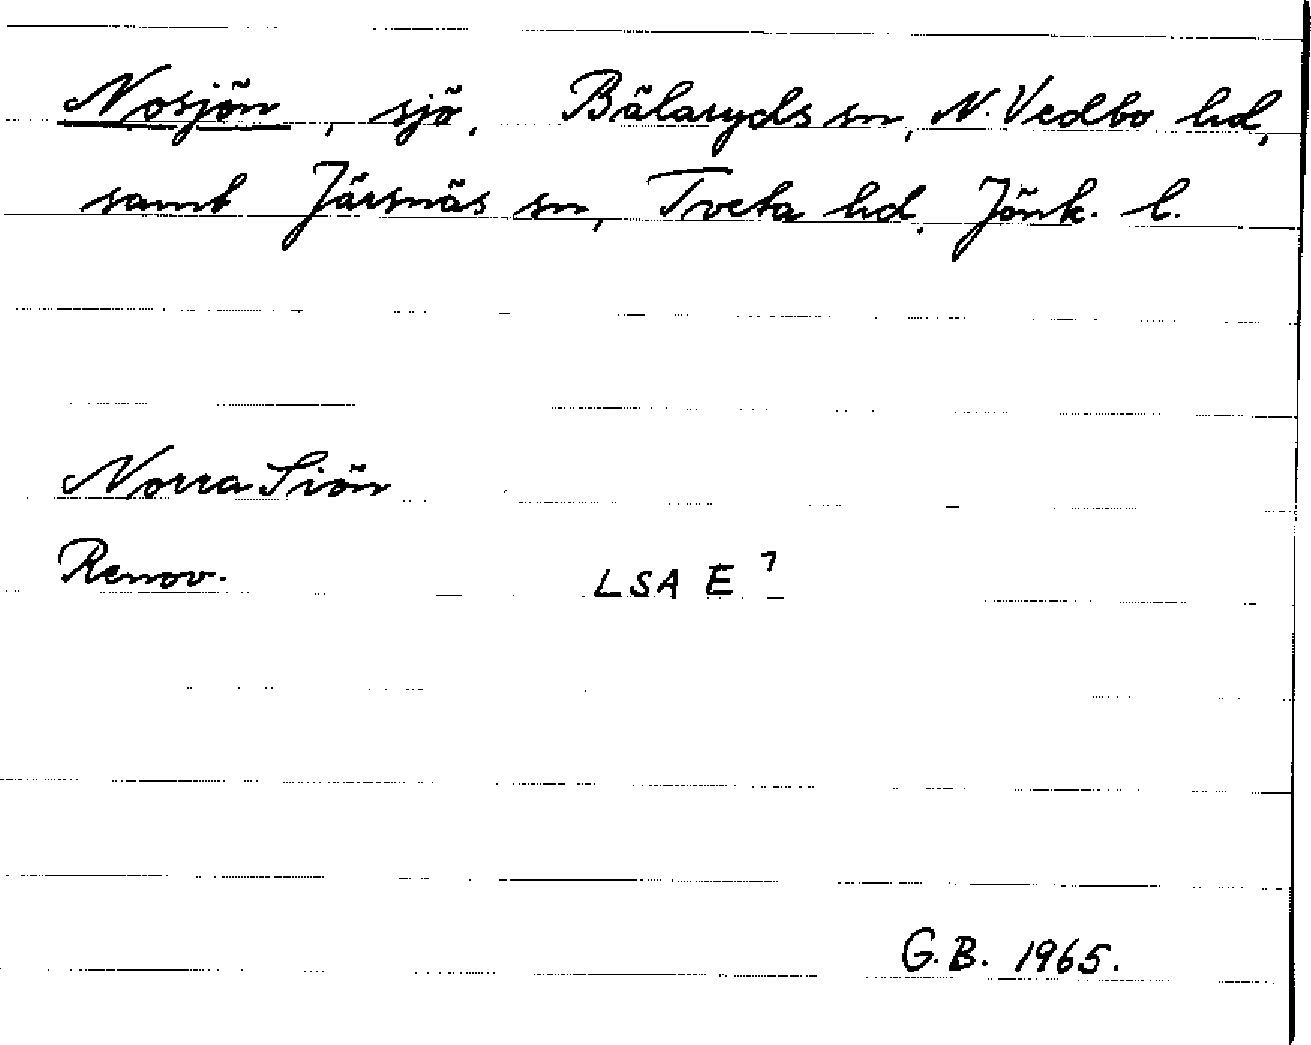 Nosjön, sjö, Bälaryds sn, N. Vedbo hd,
samt Järsnäs sn, Tveta hd, Jönk. l.
Norra Siön
Renov. LSA E 7
G.B. 1965.